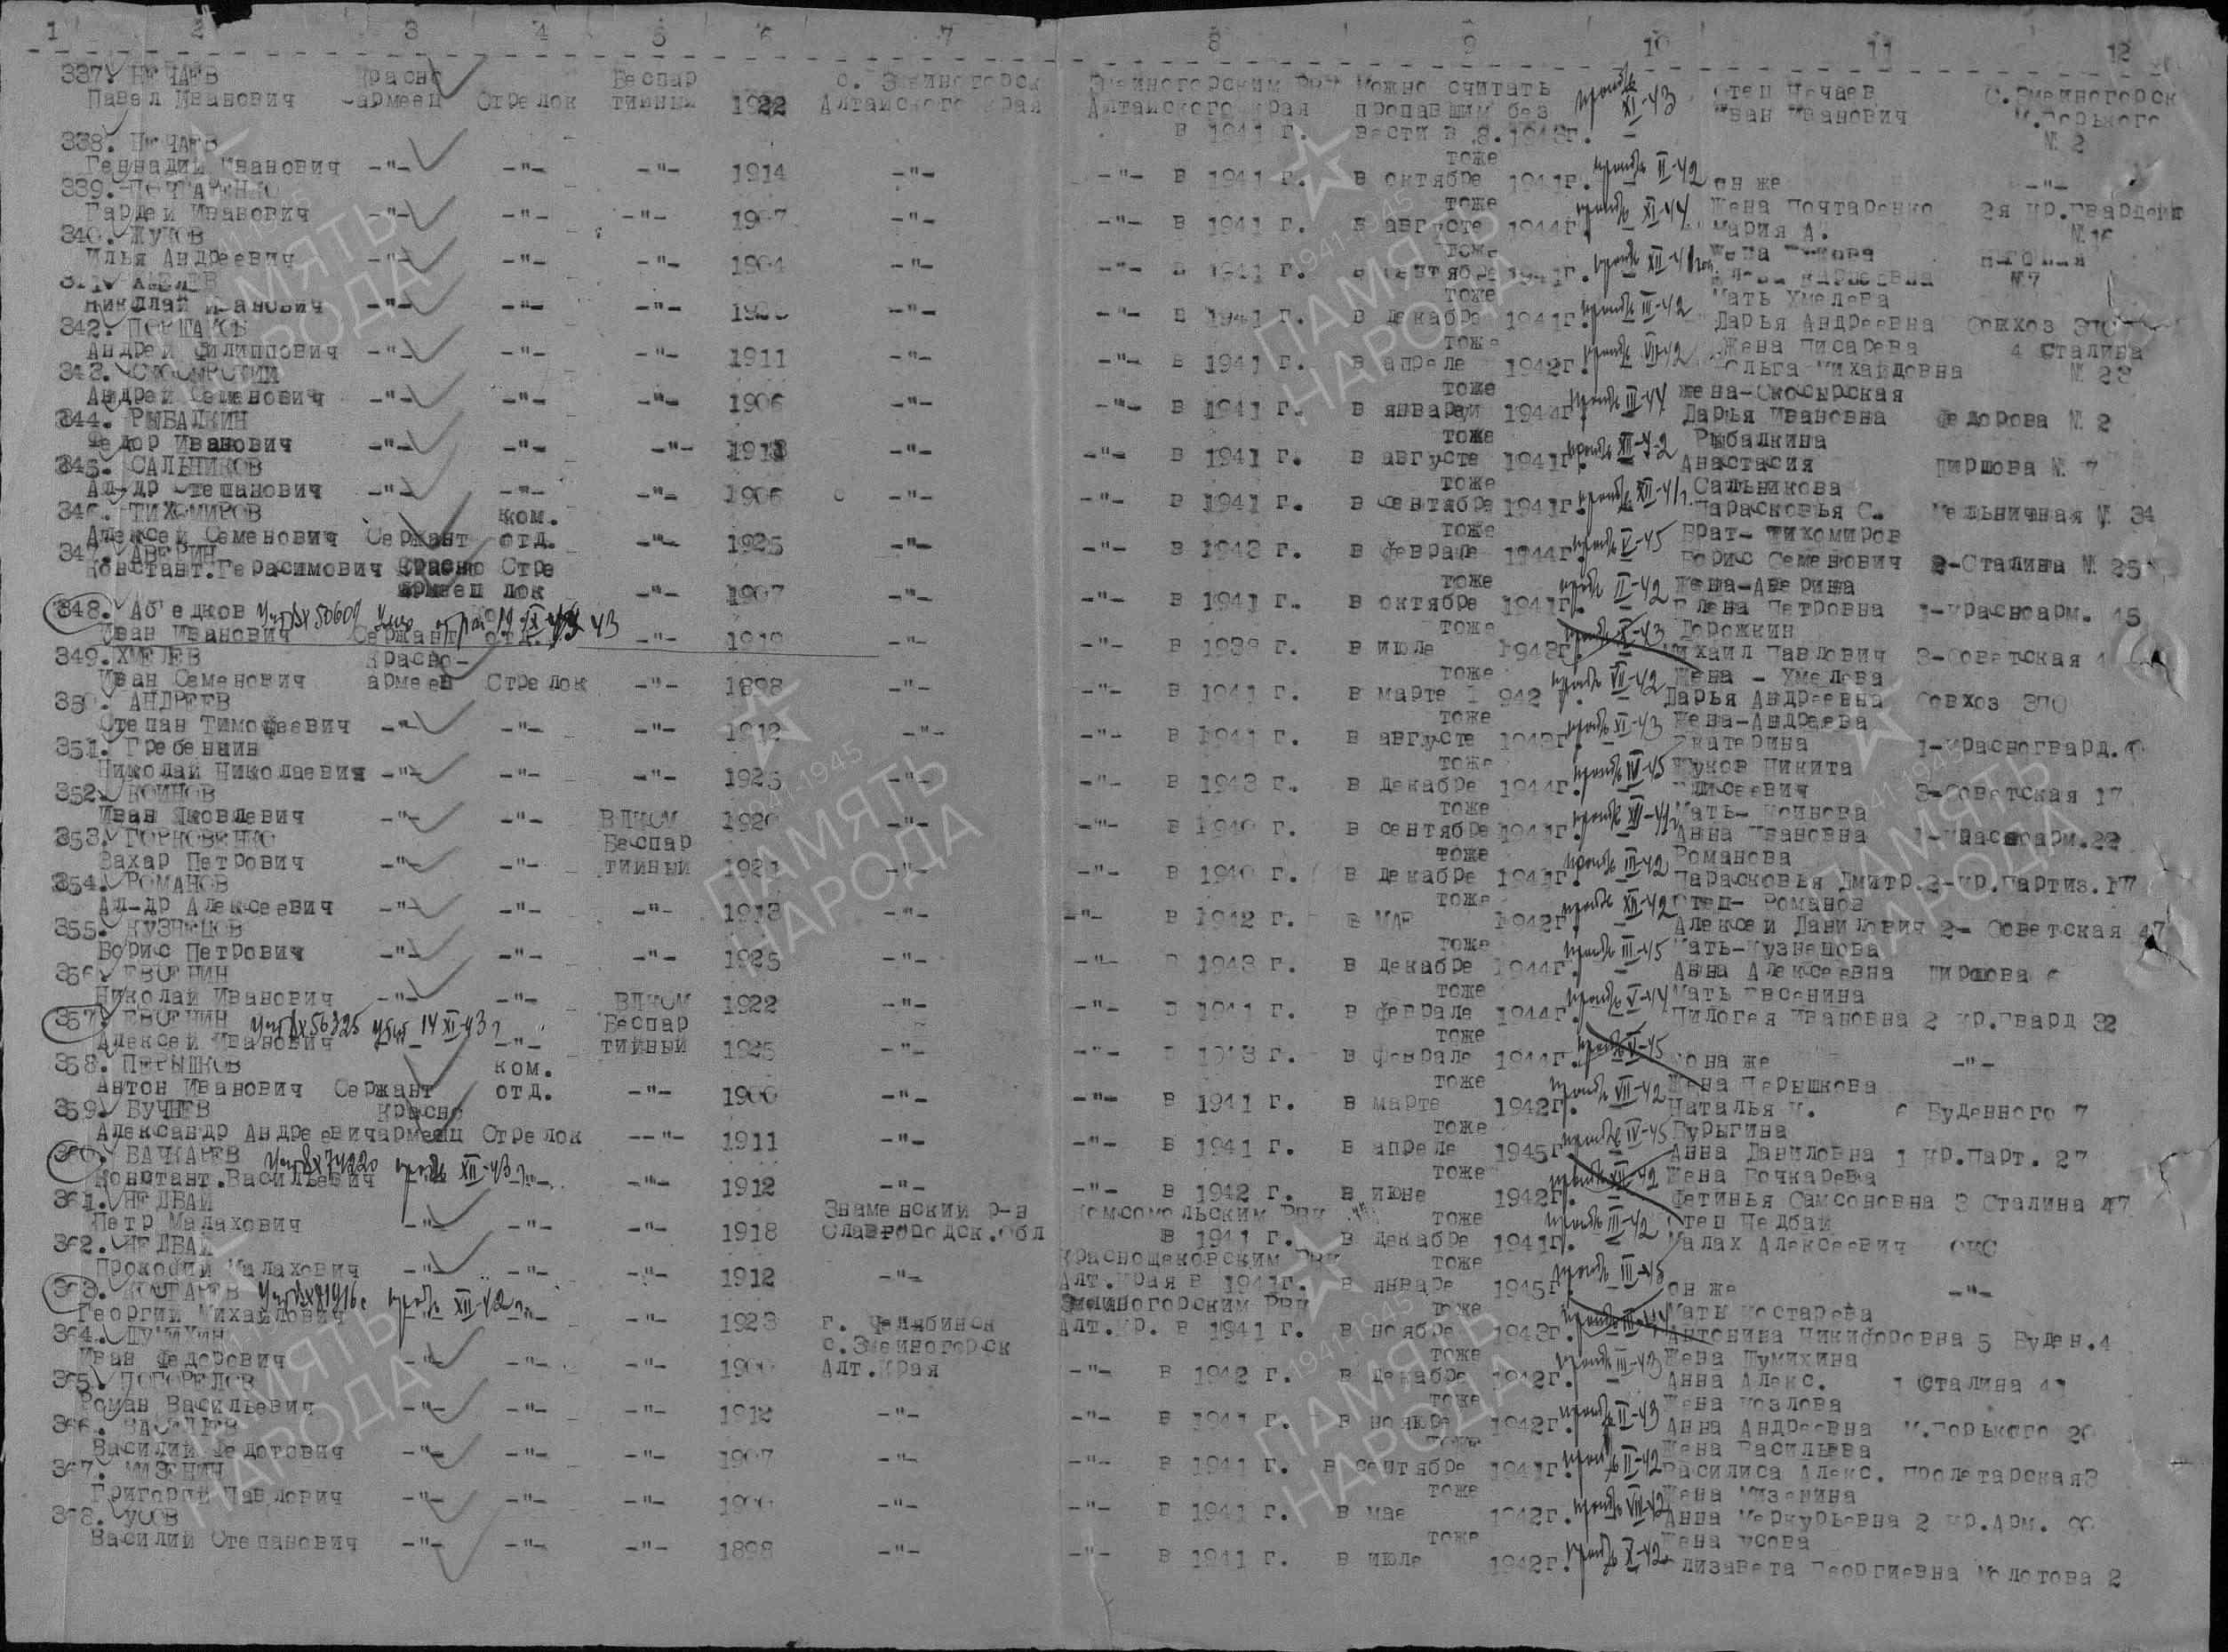 1 2 3 4 5 6 7 8 9 10 11 12
337. НЕЧАЕВ Красно Беспар с. Змеиногорск Змеиногорским РВК Можно считать Отец Нечаев С.Змеиногорск
Павел Иванович армеец Стрелок тийный 1922 Алтайского края Алтайского края пропавшим без XI-43 Иван Иванович М.Горького
в 1941 г. вести в № 2
338. НЕЧАЕВ тоже
Геннадий Иванович -"- -"- -"- 1914 -"- -"- в 1941 г. в октябре 1941г. II-42 он же -"-
339. ПОЧТАРЕНКО тоже Жена Почтаренко 2я Кр.Гвардейц
Гардей Иванович -"- -"- -"- 1907 -"- -"- в 1941 г. в августе 1944г. XI-44 Мария А. № 16
340. ЖУКОВ тоже Жена
Илья Андреевич -"- -"- -"- 1904 -"- -"- в 1941 г. в сентябре 1941г. XII-41 № 7
341. ХМЕЛЕВ тоже Мать Хмелева
Николай Иванович -"- -"- -"- -"- -"- в 1941 г. в декабре 1941г. III-42 Дарья Андреевна Совхоз ЗПО
342. тоже Жена Писарева 4 Сталина
Андрей Филиппович -"- -"- -"- 1911 -"- -"- в 1941 г. в апреле 1942г. VII-42 Ольга Михайловна № 23
343. тоже Жена-Скосырская
Андрей Семенович -"- -"- -"- 1906 -"- -"- в 1941 г. в январе 1944г. III-44 Дарья Ивановна Федорова № 2
344. РЫБАЛКИН тоже Рыбалкина
Федор Иванович -"- -"- -"- -"- -"- в 1941 г. в августе 1941г. XII-42 Анастасия Пиршова № 7
345. САЛЬНИКОВ тоже Сальникова
Ал-др Степанович -"- -"- -"- 1906 -"- -"- в 1941 г. в сентябре 1941г. XII-41г. Парасковья С. Мельничная № 34
346. ТИХОМИРОВ ком. тоже Брат- Тихомиров
Алексей Семенович Сержант отд. -"- 1925 -"- -"- в 1943 г. в феврале 1944г. V-45 Борис Семенович 2-Сталина № 25
347. АВЕРИН тоже Жена-Аверина
Констант.Герасимович Красно Стре
армеец лок -"- 1907 -"- -"- в 1941 г. в октябре 1941г. II-42 Елена Петровна 1-Красноарм. 45
348. Аб'едков 50609 43 тоже Дорожкин
Иван Иванович Сержант отд. -"- 1919 -"- -"- в 1939 г. в июле 1943г. X-43 Михаил Павлович 3-Советская
349. ХМЕЛЕВ Красно- тоже Жена - Хмелева
Иван Семенович армеец Стрелок -"- 1898 -"- -"- в 1941 г. в марте 1942 VII-42 Дарья Андреевна Совхоз ЗПО
350. АНДРЕЕВ тоже Жена-Андреева
Степан Тимофеевич -"- -"- -"- 1912 -"- -"- в 1941 г. в августе 1943г. XI-43 Екатерина 1-Красногвард.
351. Гребенкин тоже Жуков Никита
Николай Николаевич -"- -"- -"- 1925 -"- -"- в 1943 г. в декабре 1944г. IV-45 Елисеевич 3-Советская 17
352. КОИНОВ тоже Мать- Коинова
Иван Яковлевич -"- -"- ВЛКСМ 1920 -"- -"- в 1940 г. в сентябре 1941г. XII-41г. Анна Ивановна 1-Красноарм.22
353. ГОРНОВЕНКО Беспар тоже Романова
Захар Петрович -"- -"- тийный 1921 -"- -"- в 1940 г. в декабре 1941г. III-42 Парасковья Дмитр. 2-Кр.Партиз.17
354. РОМАНОВ тоже Отец- Романов
Ал-др Алексеевич -"- -"- -"- 1913 -"- -"- в 1942 г. в мае 1942г. XII-42 Алексей Данилович 2- Советская 47
355. КУЗНЕЦОВ тоже Мать-Кузнецова
Борис Петрович -"- -"- -"- 1925 -"- -"- в 1943 г. в декабре 1944г. III-45 Анна Алексеевна Пиршова 6
356. ЕВСЕНИН тоже Мать Евсенина
Николай Иванович -"- -"- ВЛКСМ 1922 -"- -"- в 1941 г. в феврале 1944г. V-44 Пилогея Ивановна 2 Кр.Гвард 32
357. ЕВСЕНИН 56325 14 XI-43г. Беспар тоже
Алексей Иванович -"- -"- тийный 1925 -"- -"- в 1943 г. в феврале 1944г. V-45 она же -"-
358. ПЕРЫШКОВ ком. тоже Жена Перышкова
Антон Иванович Сержант отд. -"- 1900 -"- -"- в 1941 г. в марте 1942г. VII-42 Наталья 6 Буденного 7
359. БУЧНЕВ Красно тоже Бурыгина
Александр Андреевич армеец Стрелок -"- 1911 -"- -"- в 1941 г. в апреле 1945г. IV-45 Анна Даниловна 1 Кр.Парт. 27
360. БАЧКАРЕВ 74220 XII-43г. тоже Жена Бочкарева
Констант.Васильевич -"- 1912 -"- -"- в 1942 г. в июне 1942г. XII-42 Фетинья Самсоновна 3 Сталина 47
361. НЕДБАЙ Знаменский р-н Комсомольским РВК тоже Отец Недбай
Петр Малахович -"- -"- -"- 1918 Славгородск.обл в 1941 г. в декабре 1941г. III-42 Малах Алексеевич СХС
362. НЕДБАЙ Краснощековским РВК тоже
Прокофий Малахович -"- -"- -"- 1912 -"- Алт.Края в 1941г. в январе 1945г. III-45 он же -"-
363. КОСТАРЕВ XII-42г. Змеиногорским РВК тоже Мать Костарева
Георгий Михайлович -"- -"- 1923 г. Челябинск Алт.Кр. в 1941 г. в ноябре 1943г. III-44 Антонина Никифоровна 5 Буден.4
364. ШУМИХИН с.Змеиногорск тоже Жена Шумихина
Иван Федорович -"- -"- -"- Алт.Края -"- в 1942 г. в декабре 1942г. III-43 Анна Алекс. 1 Сталина 41
365. ПОГОРЕЛОВ тоже Жена Козлова
Роман Васильевич -"- -"- -"- 1912 -"- -"- в 1941 г. в ноябре 1942г. II-43 Анна Андреевна М.Горького 20
366. ВАСИЛЬЕВ тоже Жена Васильева
Василий Федотович -"- -"- -"- 1907 -"- -"- в 1941 г. в сентябре 1941г. II-42 Василиса Алекс. Пролетарская3
367. МИЗЕНИН тоже Жена Мизенина
Григорий Павлович -"- -"- -"- -"- -"- в 1941 г. в мае 1942г. VIII-42 Анна Меркурьевна 2 Кр.Арм.
368. УСОВ тоже Жена Усова
Василий Степанович -"- -"- -"- 1898 -"- -"- в 1941 г. в июле 1942г. X-42 Елизавета Георгиевна Молотова 2
ПАМЯТЬ НАРОДА
1941-1945